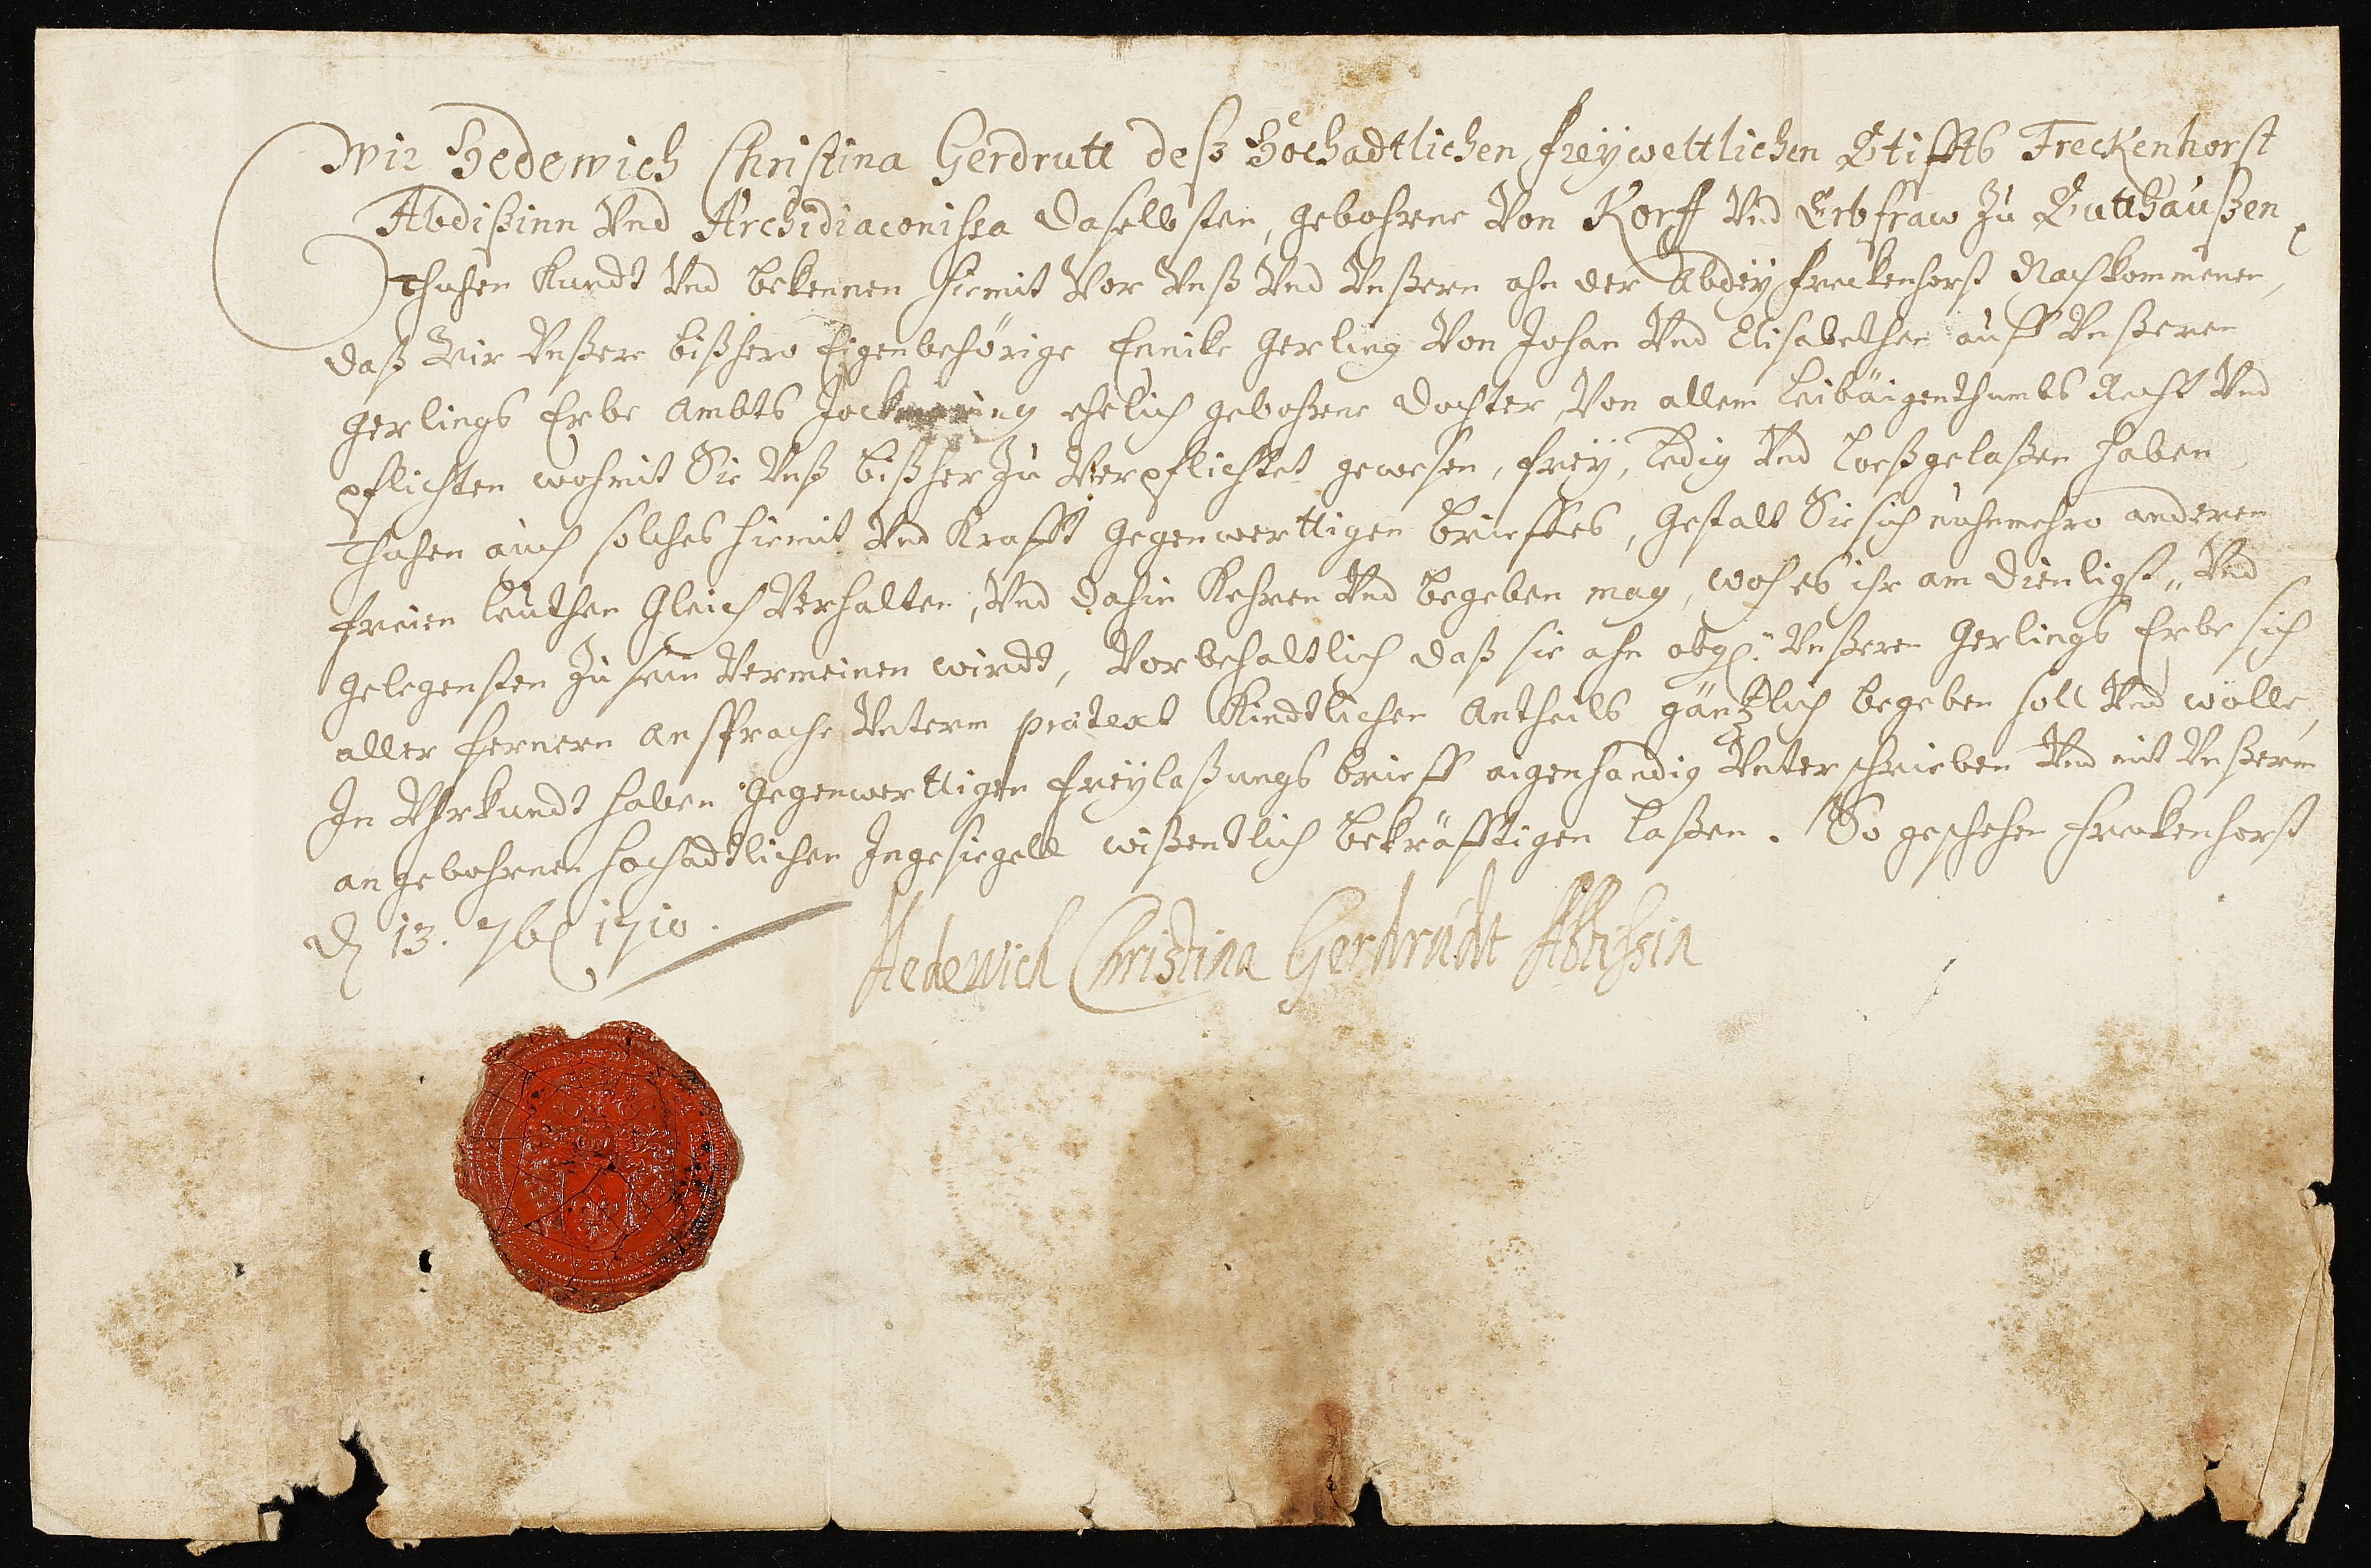 Wir Hedewich Christina Gerdrutt deß Hochadtlichen freyweltlichen Stiffts Freckenhorst
Abdißinn Vnd Archidiaconissa daselbsten, gebohrne Von Korff Vnd Erbfraw zu Sutthaußen
Thuhen kundt Vnd bekennen hiemit Vor Vnß Vnd Vnßern ahn der Abdey freckenhorst Nachkommenen,
daß Wir Vnßere bißhero Eigenbehörige Ennike Gerling Von Johan Vnd Elisabethen auff Vnßeren
Gerlings Erbe Ambts ehelich gebohrne dochter, Von allem leibäigenthumbs Recht Vnd
pflichten wohmit Sie Vnß bißher zu Verpflichtet gewesen, frey, ledig Vnd loeßgelaßen haben
Thuhen auch solches hiemit Vnd Krafft gegenwerttigen brieffes, gestalt Sie sich nuhnmehro anderen
freien leuthen gleich Verhalten, Vnd dahin kehren Vnd begeben mag, woh es ihr am dienligst„ Vnd
gelegensten zu sein Vermeinen wirdt, Vorbehaltlich daß sie ahn obg. Vnßeren Gerlings Erbe sich
aller fernern ansprache Vnterm prætext Kindtlichen Antheils gäntzlich begeben soll Vnd wolle,
In Vhrkundt haben gegenwerttigen freylaßungs brieff aigenhandig Vnterschrieben Vnd mit Vnßerm
angebohrnen hochadtlichen Ingesiegell wißentlich bekräfftigen laßen. So geschehen freckenhorst
d 13. 7b 1710.
Hedewich Christina Gerdrudt Abtissin